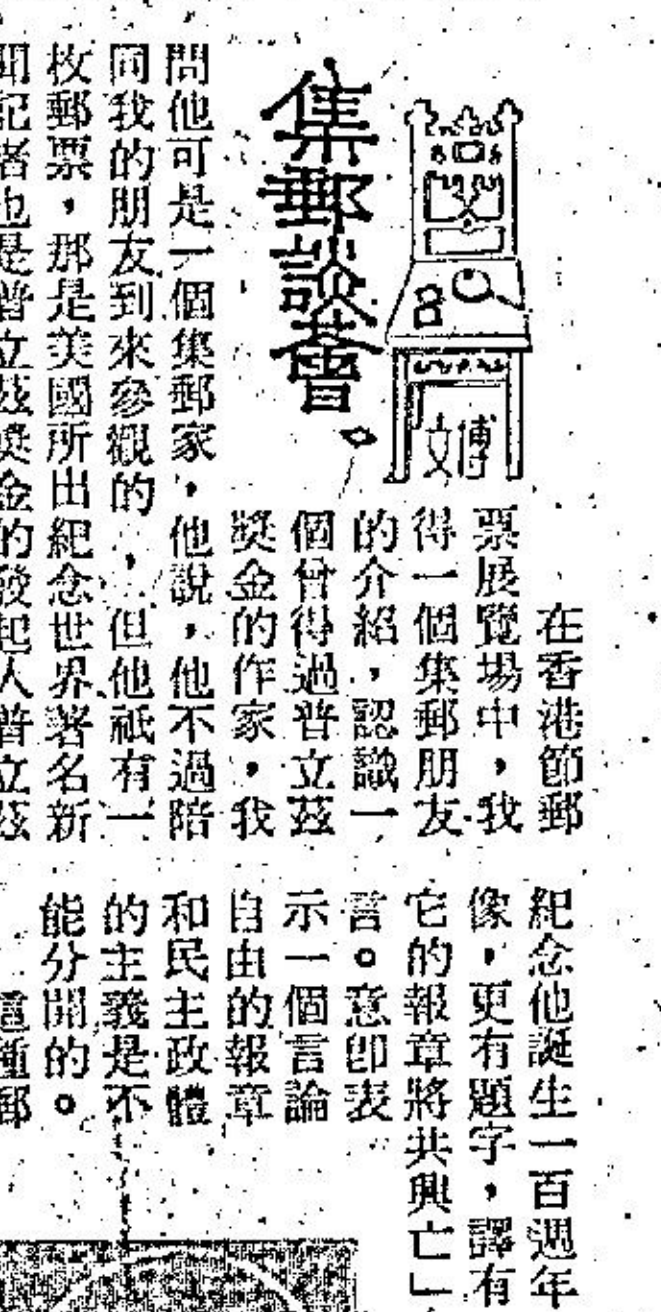 博文
集郵談薈。
在香港節郵
票展覽場中，我
得一個集郵朋友
的介紹，認識一
個曾得過普立茲
獎金的作家，我
問他可是一個集郵家，他說，他不過陪
同我的朋友到來參觀的，但他祇有一
枚郵票，那是美國所出紀念世界著名新
聞記者也是普立茲獎金的發起人普立茲
紀念他誕生一百週年
像，更有題字，譯有
它的報章將共興亡」
言。意即表
示一個言論
自由的報章
和民主政體
的主義是不
能分開的。
這種郵